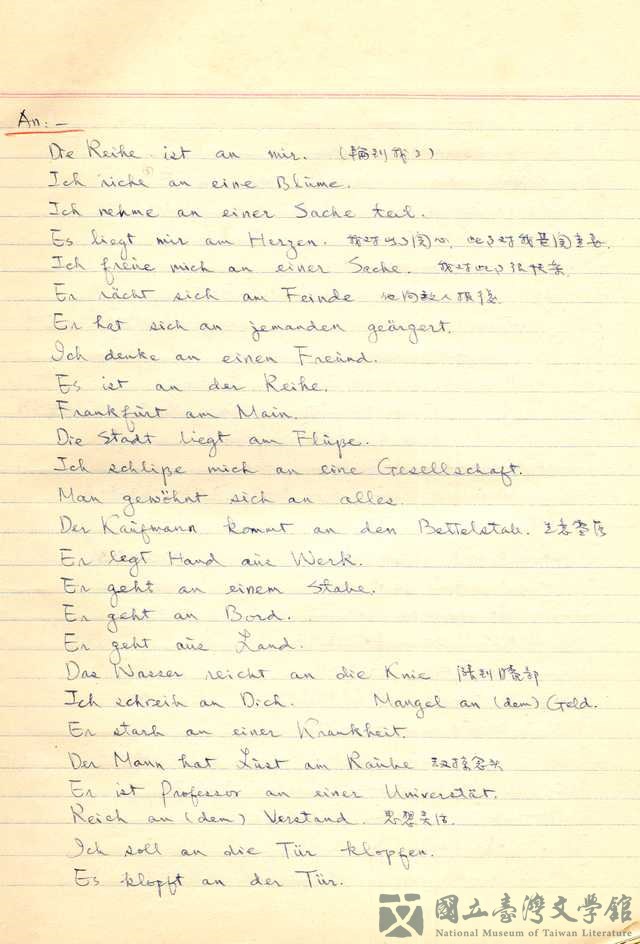 An:—
Die Reihe ist an mir. (輪到我了)
Ich riche an eine Blüme.
Ich nehme an einer Sache teil.
Es liegt mir am Herzen. 我对此事関心, 此事对我是関重要.
Ich freüe mich an einer Sache. 我对此事很快楽.
Er rächt sich am Feinde 他向敵人報復.
Er hat sich an jemanden geärgert.
Ich denke an einen Freünd.
Es ist an der Reihe.
Frankfürt am Main.
Die Stadt liegt am Flüße.
Ich schliße mich an eine Gesellschaft.
Man gewöhnt sich an alles.
Der Kaüfmann kommt an den Bettelstab. 生意
Er legt Hand aüs Werk.
Er geht an einem Stabe.
Er geht an Bord.
Er geht aüs Land.
Das Wasser reicht an die Knie 到膝部
Ich schreib an Dich. Mangel an (dem) Geld.
Er starb an einer Krankheit.
Der Mann hat Lüst am Raübe
Er ist Professor an einer Universtät.
Reich an (dem) Verstand. 思想灵活.
Ich soll an die Tür klopfen.
Es klopft an der Tür.
國立臺灣文學館
National Museum of Taiwan Literature